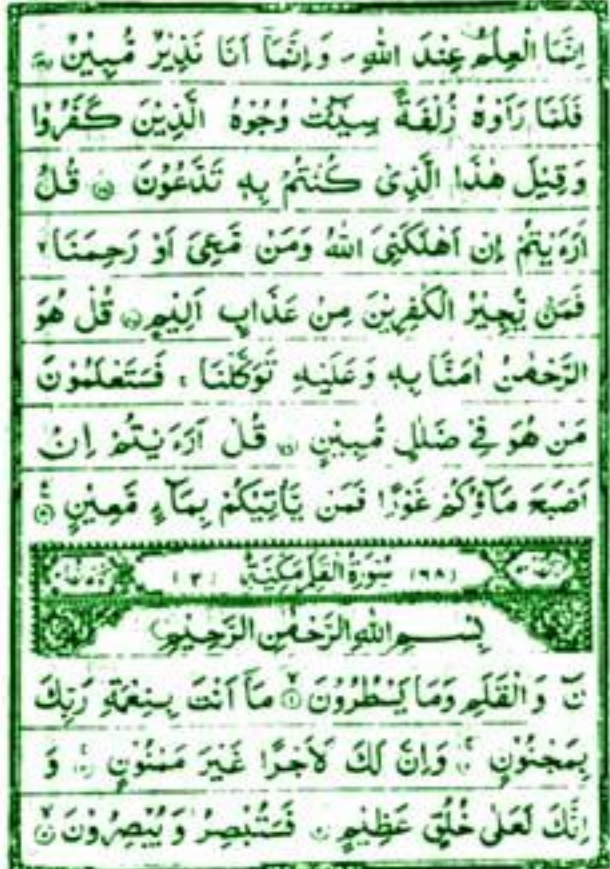 اِنَّمَا الْعِلْمُ عِنْدَ اللّٰهِ ۪ وَاِنَّمَاۤ اَنَا نَذِيْرٌ مُّبِيْنٌ
فَلَمَّا رَاَوْهُ زُلْفَةً سِيْٓـَٔتْ وُجُوْهُ الَّذِيْنَ كَفَرُوْا
وَقِيْلَ هٰذَا الَّذِيْ كُنْتُمْ بِهٖ تَدَّعُوْنَ قُلْ
اَرَءَيْتُمْ اِنْ اَهْلَكَنِيَ اللّٰهُ وَمَنْ مَّعِيَ اَوْ رَحِمَنَا
فَمَنْ يُّجِيْرُ الْكٰفِرِيْنَ مِنْ عَذَابٍ اَلِيْمٍ قُلْ هُوَ
الرَّحْمٰنُ اٰمَنَّا بِهٖ وَعَلَيْهِ تَوَكَّلْنَا ۚ فَسَتَعْلَمُوْنَ
مَنْ هُوَ فِيْ ضَلٰلٍ مُّبِيْنٍ قُلْ اَرَءَيْتُمْ اِنْ
اَصْبَحَ مَآؤُكُمْ غَوْرًا فَمَنْ يَّاْتِيْكُمْ بِمَآءٍ مَّعِيْنٍ
(٦٨) سُوْرَةُ الْقَلَمِ مَكِّيَّةٌ (٢)
بِسْمِ اللّٰهِ الرَّحْمٰنِ الرَّحِيْمِ
نٓ وَالْقَلَمِ وَمَا يَسْطُرُوْنَ ۙ﴿١﴾ مَاۤ اَنْتَ بِنِعْمَةِ رَبِّكَ
بِمَجْنُوْنٍ وَاِنَّ لَكَ لَاَجْرًا غَيْرَ مَمْنُوْنٍ وَ
اِنَّكَ لَعَلٰى خُلُقٍ عَظِيْمٍ فَسَتُبْصِرُ وَيُبْصِرُوْنَ